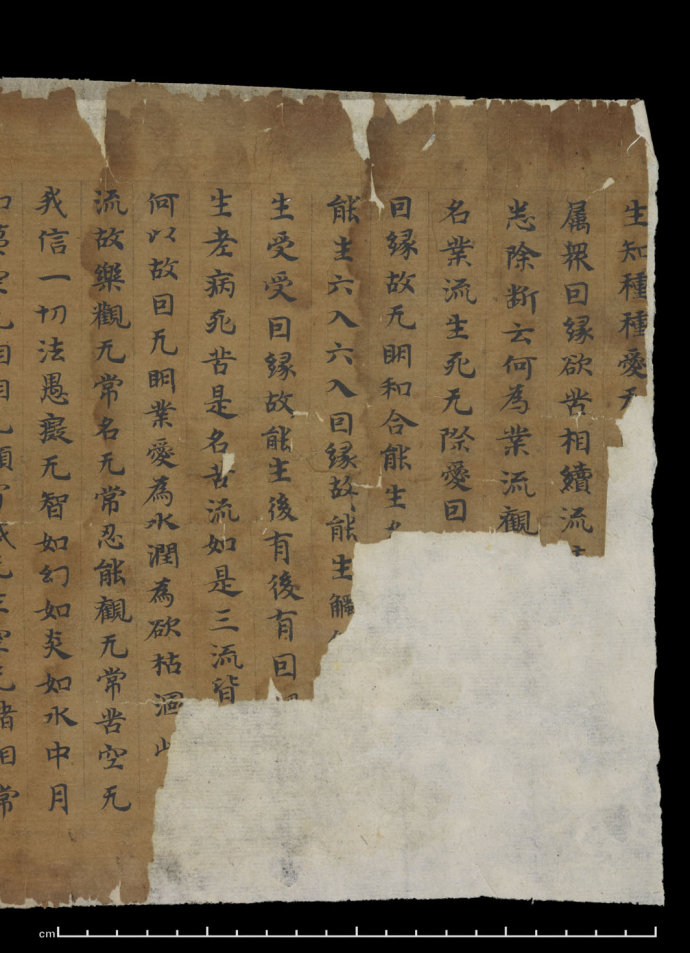 生知種種愛无
属衆因緣欲苦相續流
恙除断云何為業流觀
名業流生死无際愛因
因緣故无明和合能生
能生六入六入因緣故能生觸
生受受因緣故能生後有後有因
生老病死苦是名苦流如是三流皆
何以故因无明業愛為水潤為欲枯涸
流故樂觀无常名无常忍能觀无常苦空无
我信一切法愚癡无智如幻如炎如水中月